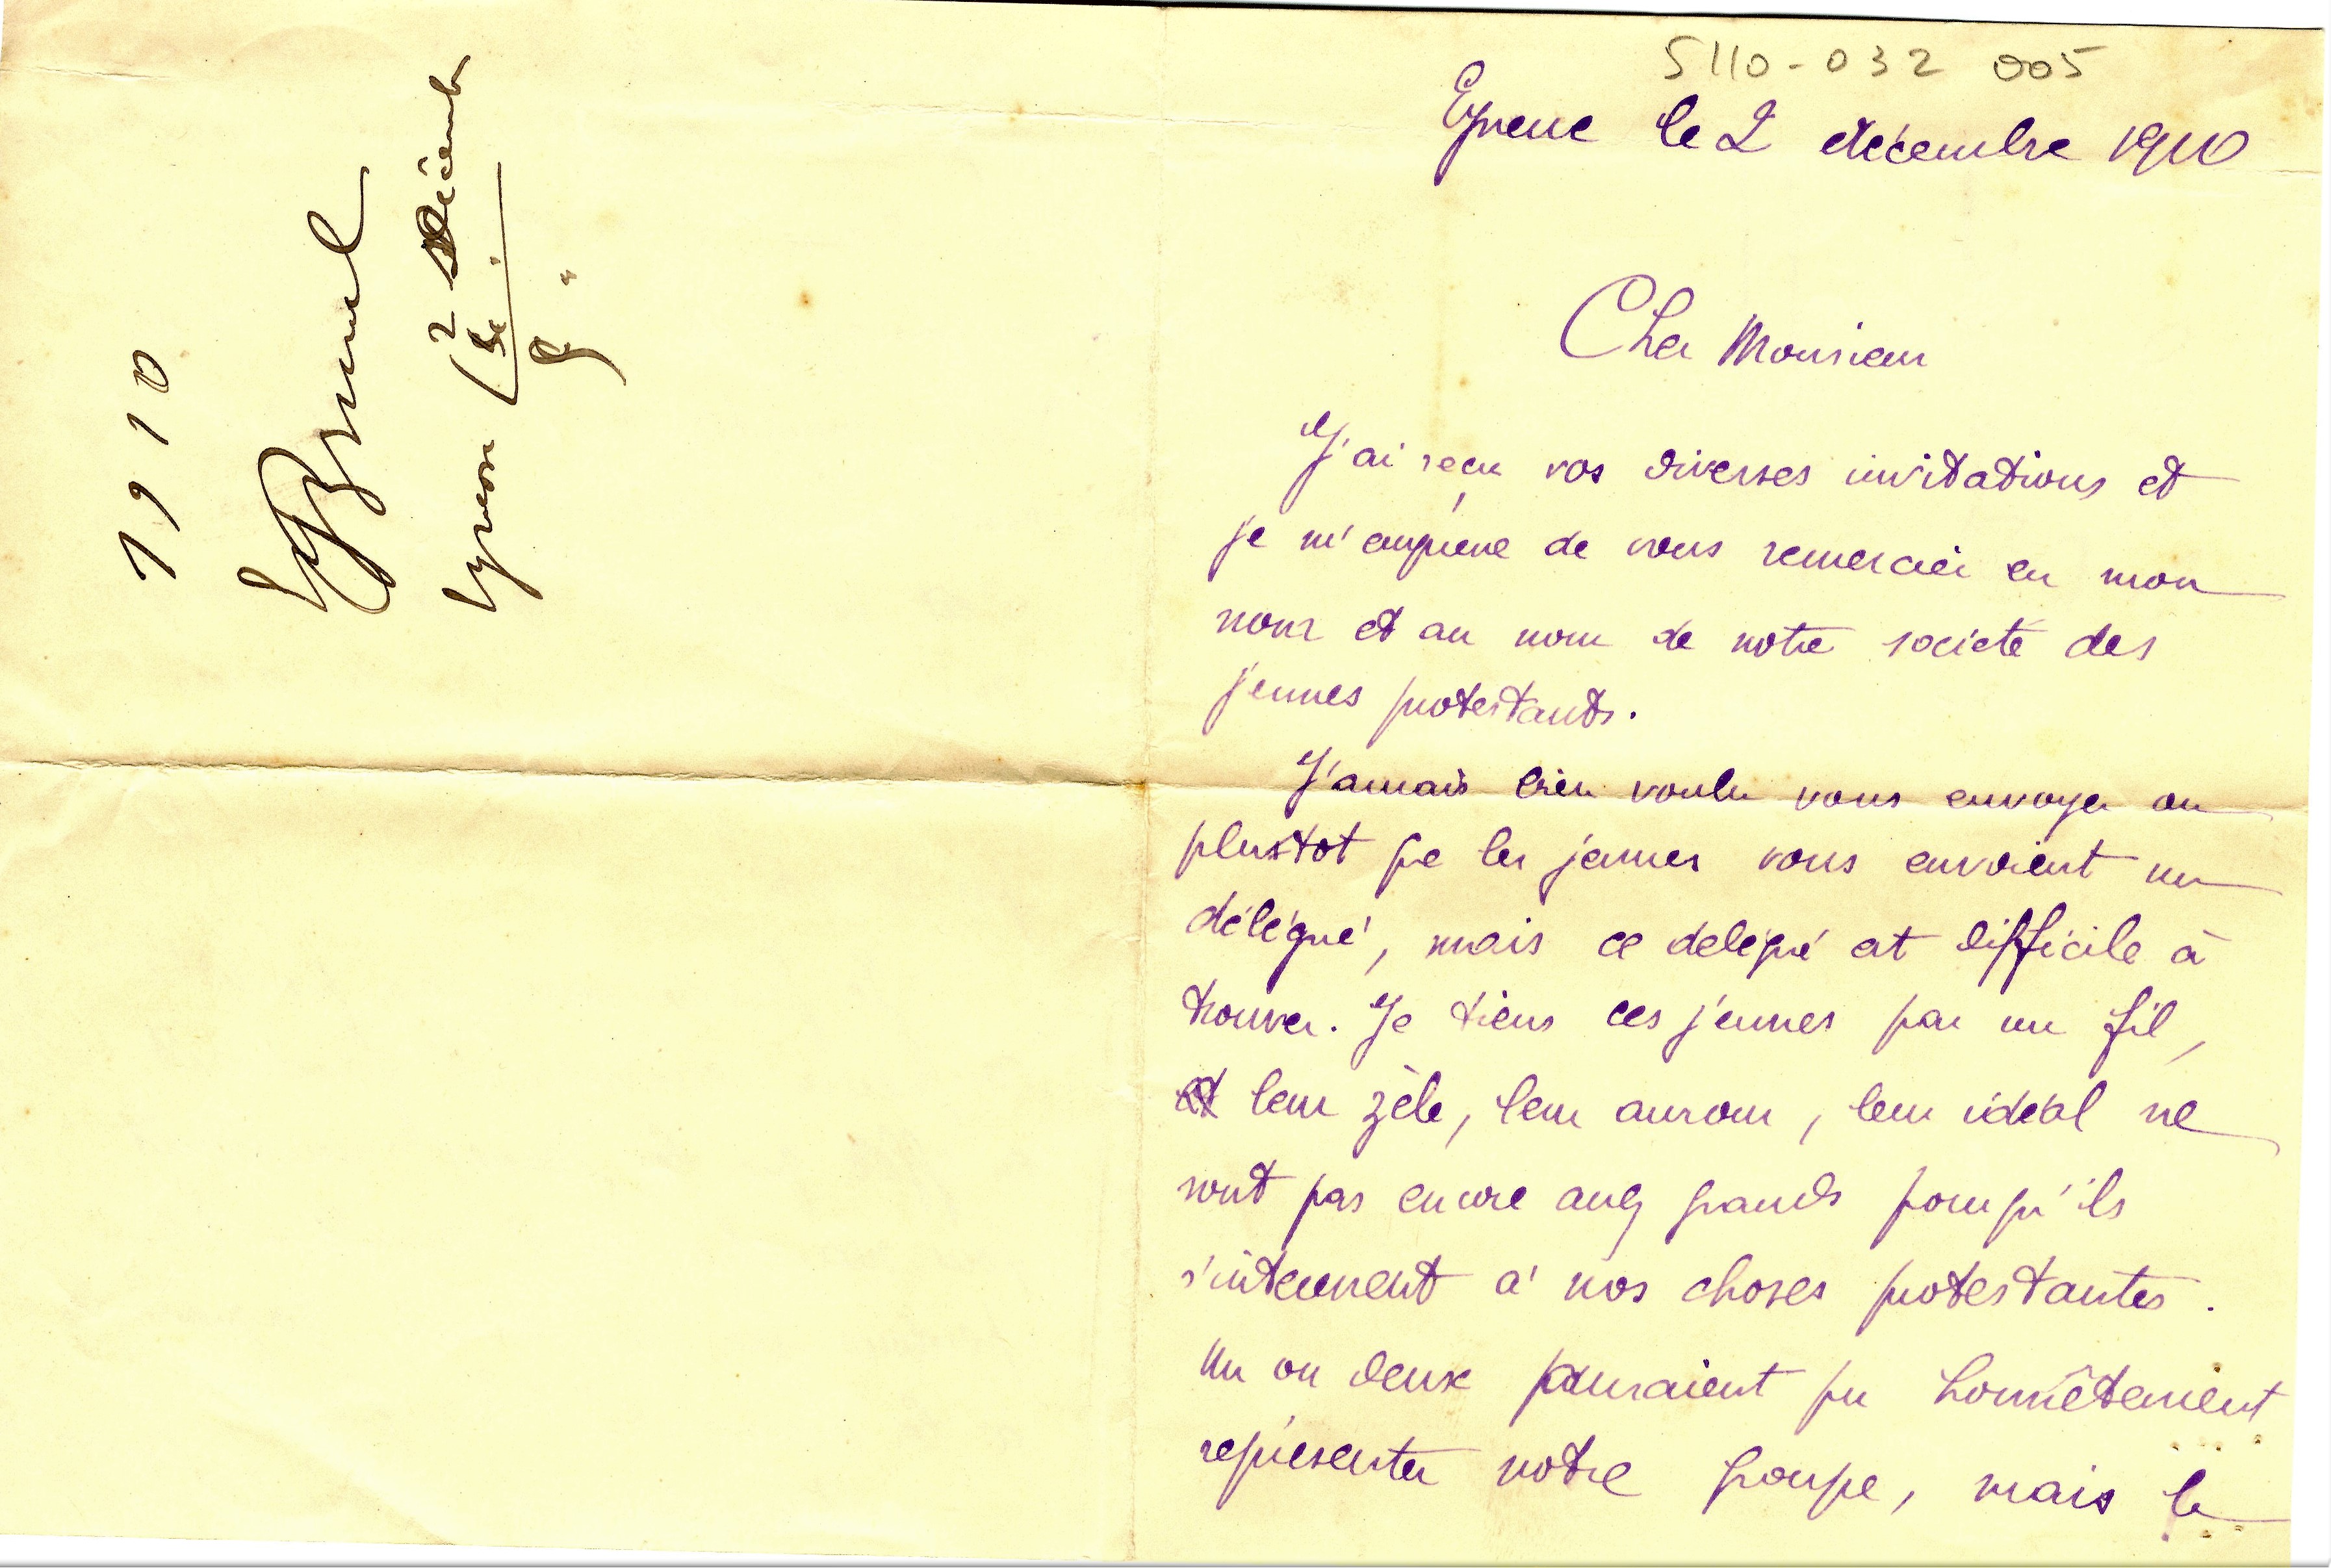 1910
Brunel
2 Décemb
5110-032 005
le 2 décembre 1910
Cher Monsieur
J'ai reçu vos diverses invitations et
je m'empresse de vous remercier en mon
nom et au nom de notre société des
jeunes protestants.
J'aurais bien voulu vous envoyer ou
plustot que les jeunes vous envoient un
délégué, mais ce delegué est difficile à
trouver. Je tiens ces jeunes par un fil,
leur zèle, leur amour, leur idéal ne
sont pas encore assez grands pourqu'ils
s'intéressent à nos choses protestantes.
Un ou deux auraient pu honnêtement
représenter notre groupe, mais le